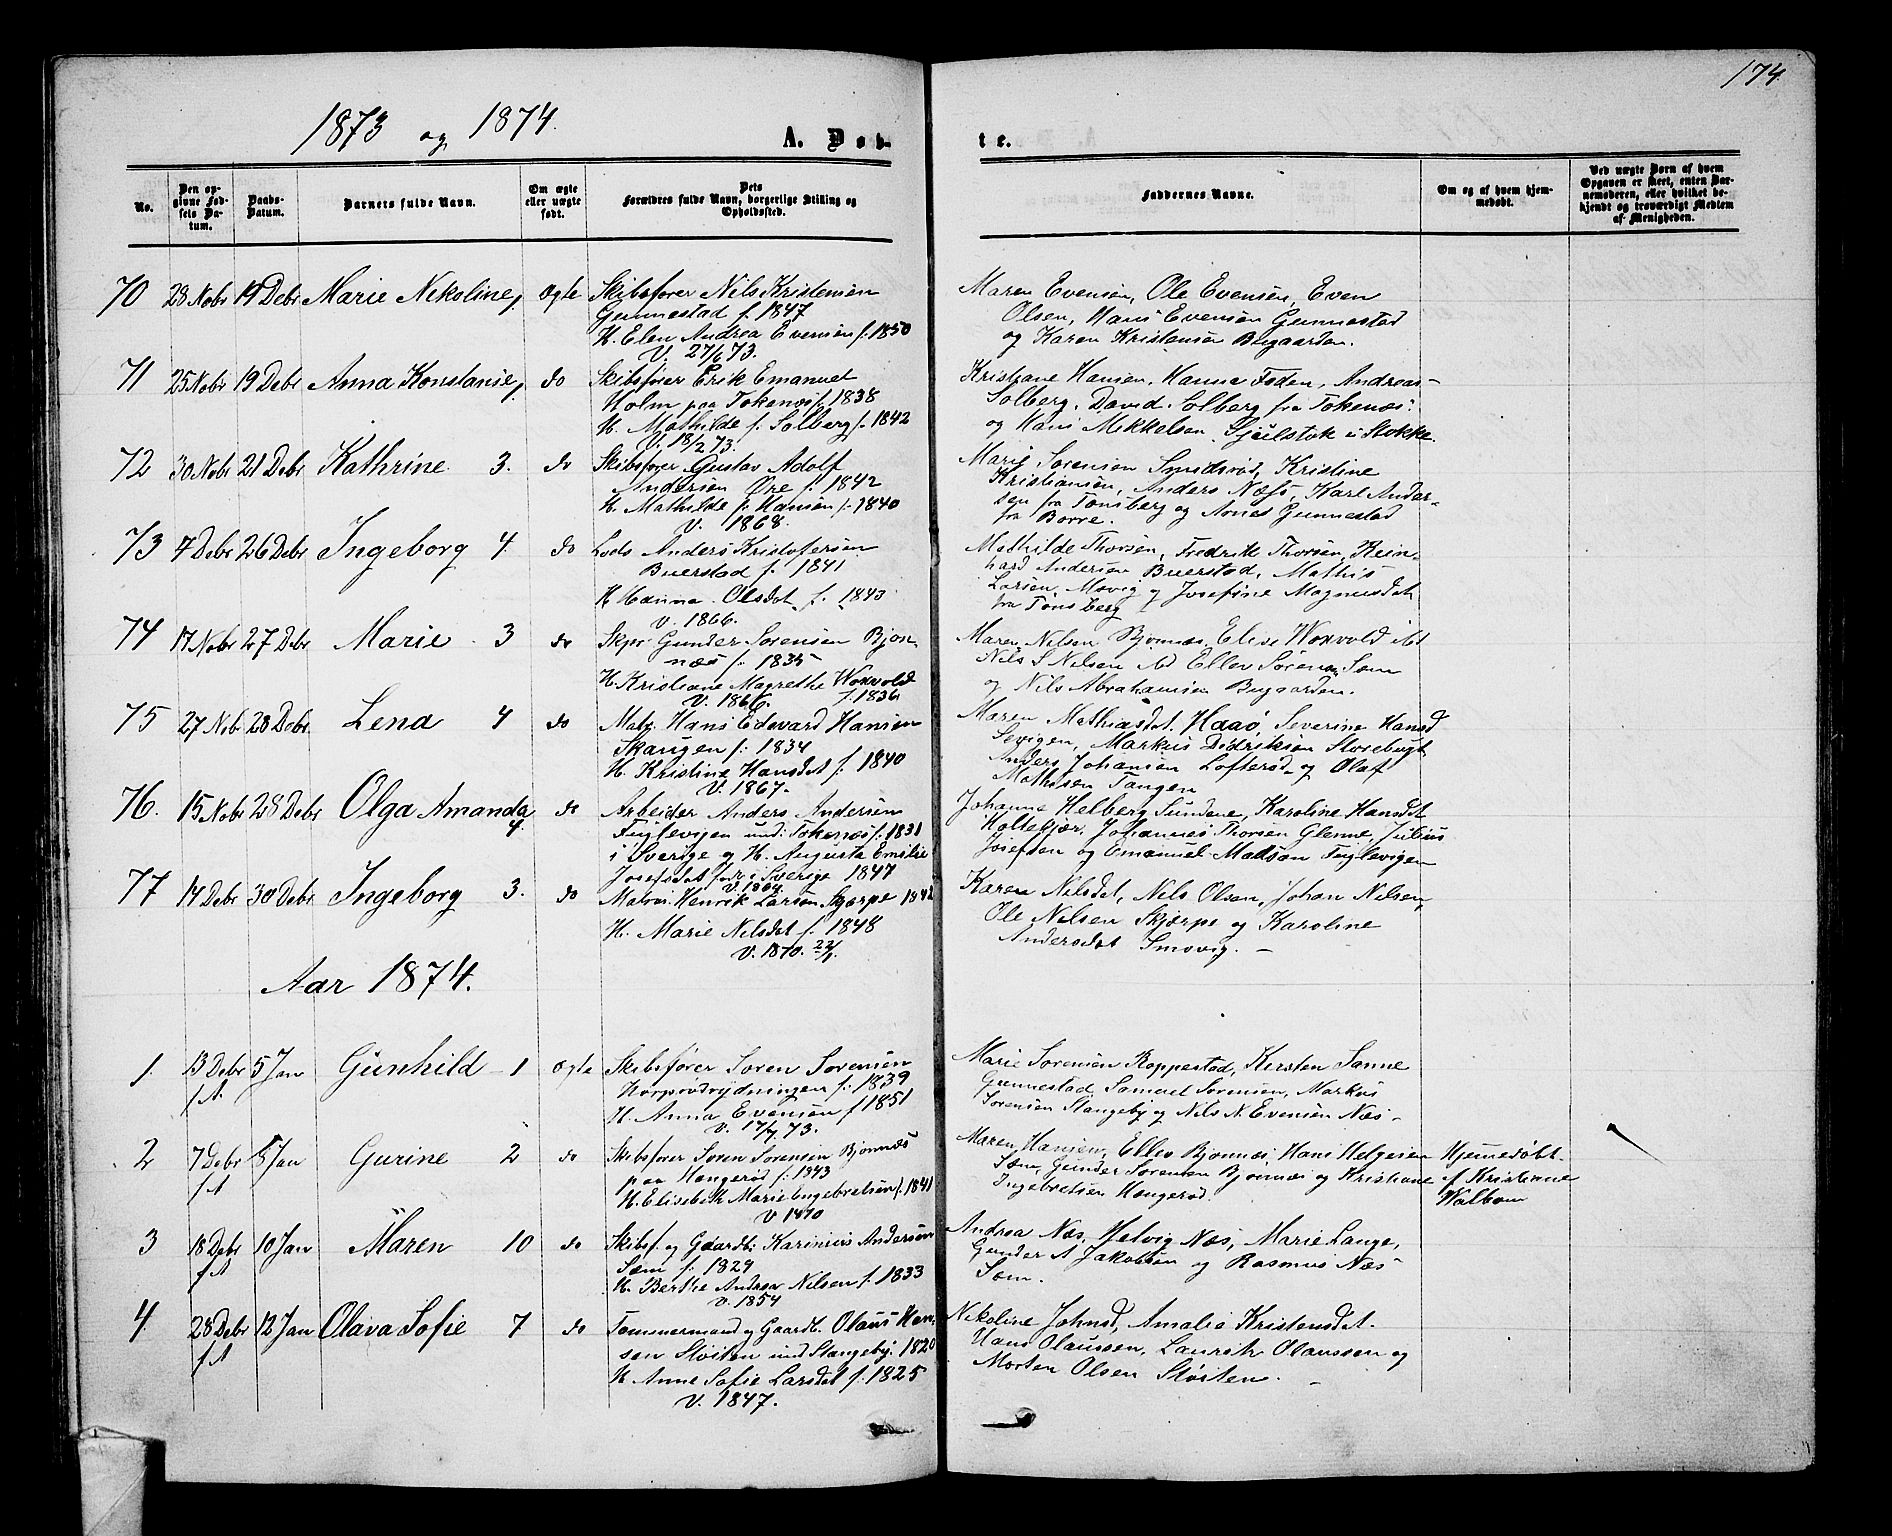 174
1873 og 1874.
A. Døb-
te.
No.
Den op-
givne Fød-
sels Da-
tum.
Daabs-
Datum.
Barnets fulde Navn.
Om ægte
eller uægte
født.
Dets
Forældres fulde Navn, borgerlige Stilling og
Opholdssted.
Faddernes Navne.
Om og af hvem hjem-
medøbt.
Ved uægte Børn af hvem
Opgaven er skeet, enten Bar-
nemoderen, eller hvilket be-
kjendt og troværdigt Medlem
af Menigheden.
70 28 Nobr 19 Debr Marie Nikoline, ægte Skibsfører Nils Kristensen
Gunnestad f. 1847
H. Elen Andrea Evensen f. 1850
V. 27/6 73.
Maren Evensen, Ole Evensen, Even
Olsen, Hans Evensen Gunnestad
og Karen Kristensen Bugaarden.
71 25 Nobr 19 Debr Anna Konstanse, do Skibsfører Erik Emanuel
Holm paa Tokenæs f. 1838
H. Mathilde f. Solberg f. 1842
V. 18/2 73.
Kristiane Hansen, Hanna Foden, Andreas
Solberg, David Solberg fra Tokenæs
og Hans Mikkelsen i Stokke.
72 30 Nobr 21 Debr Kathrine 3. do Skibsfører Gustav Adolf
Andersen Øre f. 1842
H. Mathilde f. Hansen f. 1840
V. 1868.
Marie Sorensen Smidsrød, Kristine
Kristiansen, Anders Næss, Karl Ander-
sen fra Tonsberg og Arnes Gunnestad
fra Borre.
73 7 Debr 26 Debr Ingeborg 4. do Lods Anders Kristofersen
Buerstad f. 1841
H. Hanna Olsdat. f. 1843
V. 1866.
Mathilde Thorsen, Fredrik Thorsen, Rein-
hard Andersen Buerstad, Mathis
Larsen, Movig og Josefine Magnusdat
fra Tonsberg
74 17 Nobr 27 Debr Marie 3 do Skpr Gunder Sorensen Bjon-
næs f. 1835
H. Kristiane Magrethe Woxvold
V. 1866. f. 1836
Maren Nilsen Bjonnæs, Elise Woxvold
Nils S Nilsen Ellev Sorensen Sem
og Nils Abrahamsen Bugaarden.
75 27 Nobr 28 Debr. Lena 4 do Matr. Hans Edevard Hansen
Skangen f. 1834
H. Kristine Hansdat f. 1840
V. 1867.
Maren Mathiasdat. Haaø, Severine Hansd
Sevigen, Markus Didriksen Storebugt
Anders Johansen Lofterød og Olaf
Mathisen Tangen
76. 15 Nobr 28 Debr Olga Amanda 4. do Arbeider Anders Andersen
Fuglevigen und: Tokenæs f. 1831
i Sverige og H. Augusta Emilie
Josefsdat født i Sverige 1847
V. 1864.
Johanne Helberg Sundene, Karoline Hansdt
Holtekjær, Johannes Thorsen Glenne, Julius
Josefsen og Emanuel Madsen Fuglevigen
77 14 Debr 30 Debr Ingeborg 3. do Matros Henrik Larsen Skjærpe 1842
H. Marie Nilsdat f. 1848
V. 1870. 22/1.
Karen Nilsdat, Nils Olsen, Johan Nilsen,
Ole Nilsen Skjærpe og Karoline
Andersdat Smovig. –
Aar 1874.
1. 13 Debr f.A. 5 Jan Gunhild – 1 ægte Skibsfører Soren Sorensen
Horprødrydningen f. 1839
H. Anna Evensen f 1851
V. 17/7 73.
Marie Sorensen Roppestad, Kirsten Sanne
Gunnestad, Samuel Sorensen, Markus
Sorensen Slangeby og Nils N. Evensen Næs –
2 7 Debr f.A 8 Jan Gurine 2 do Skibsfører Soren Sorensen Bjonnæs
paa Hongerød f. 1843
H. Elisebeth Marie Engebretsen f. 1841
V 1870
Maren Hansen, Ellev Bjonnæs, Hans Helgesen
Sem, Gunder Sorensen Bjonnæs og Kristiane
Ingebretsen Hongerød.
Hjemmedøbt
af Kristiane
Walbom
3 18 Debr f.A 10 Jan Maren 10 do Skibsf. og Gaardb: Karinius Andersen
Sem f. 1829
H. Berthe Andrea Nilsen f. 1833
V. 1854
Andrea Næs, Helvig Næs, Marie Lange,
Gunder A Jakobsen og Rasmus Næs
Sem.
4. 28 Debr f.A 12 Jan Olava Sofie 7 do Tommermand og Gaardb. Olaus Han-
sen Stoiten und Slangeby: 1820
H Anne Sofie Larsdat f. 1825
V. 1847.
Nikoline Johnsd, Amalia Kristensdat.
Hans Olaussen, Laurits Olaussen og
Morten Olsen Stoiten. –